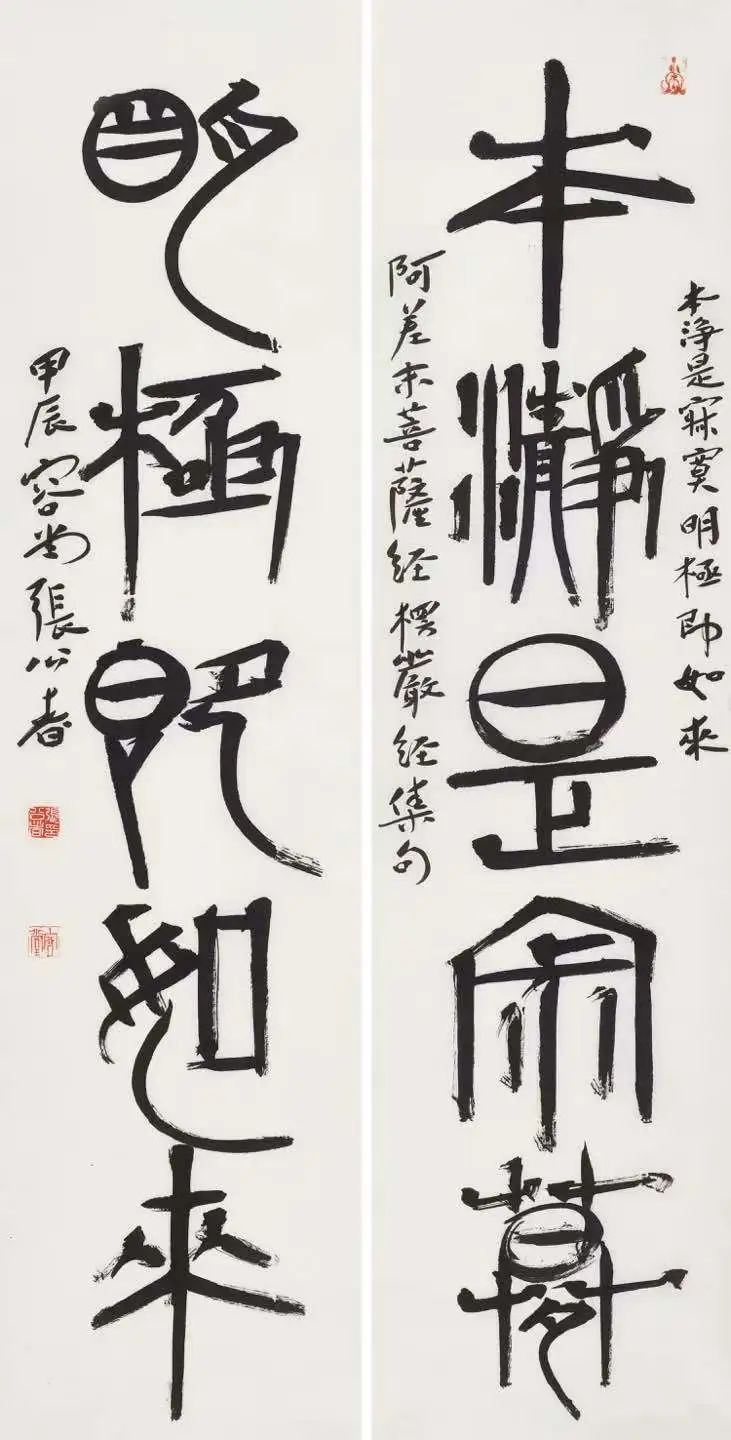 本淨是寂寞明極即如來
本瀞是寂寞
阿差末菩薩经楞嚴经集句
明極即如來
甲辰容堂張公者